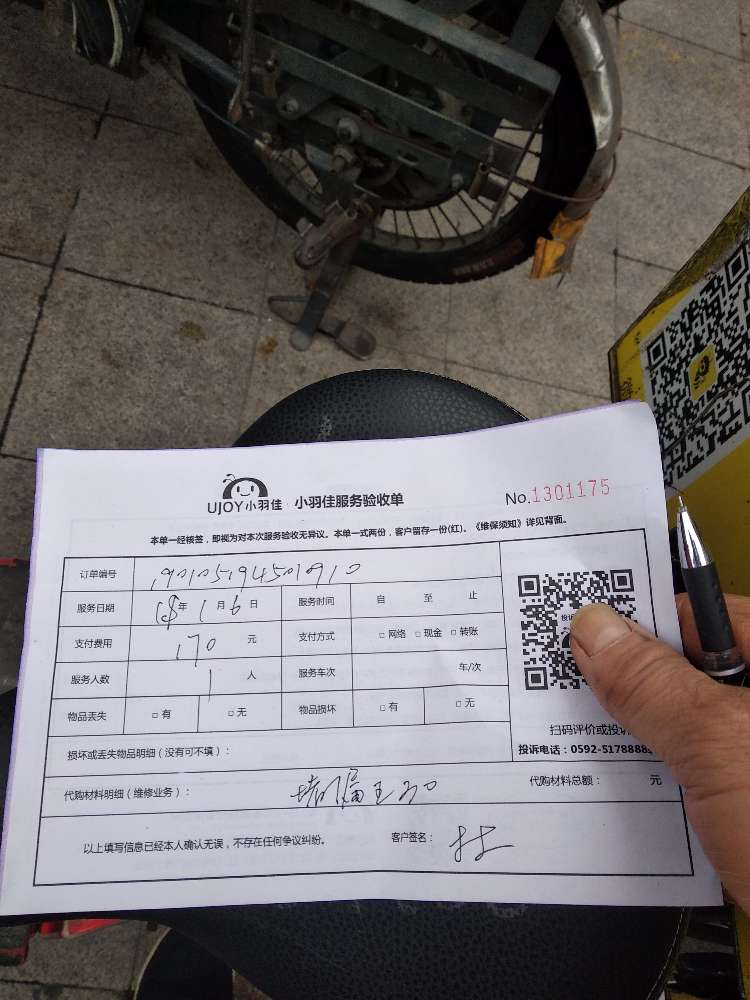 UJOY小羽佳 小羽佳服务验收单 No.1301175
本单一经核签，即视为对本次服务验收无异议。本单一式两份，客户留存一份(红)。《维保须知》详见背面。
订单编号
服务日期 18年 1月 6日 服务时间 自 至 止
支付费用 170 元 支付方式 □网络 □现金 □转账
服务人数 1 人 服务车次 车/次
物品丢失 □有 □无 物品损坏 □有 □无
扫码评价或投诉
损坏或丢失物品明细（没有可不填）：
投诉电话：0592-5178888
代购材料明细（维修业务）： 代购材料总额： 元
以上填写信息已经本人确认无误，不存在任何争议纠纷。 客户签名：